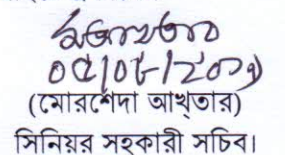 ০৫/০৮/২০১৭
(মোরশেদা আখ্তার)
সিনিয়র সহকারী সচিব।